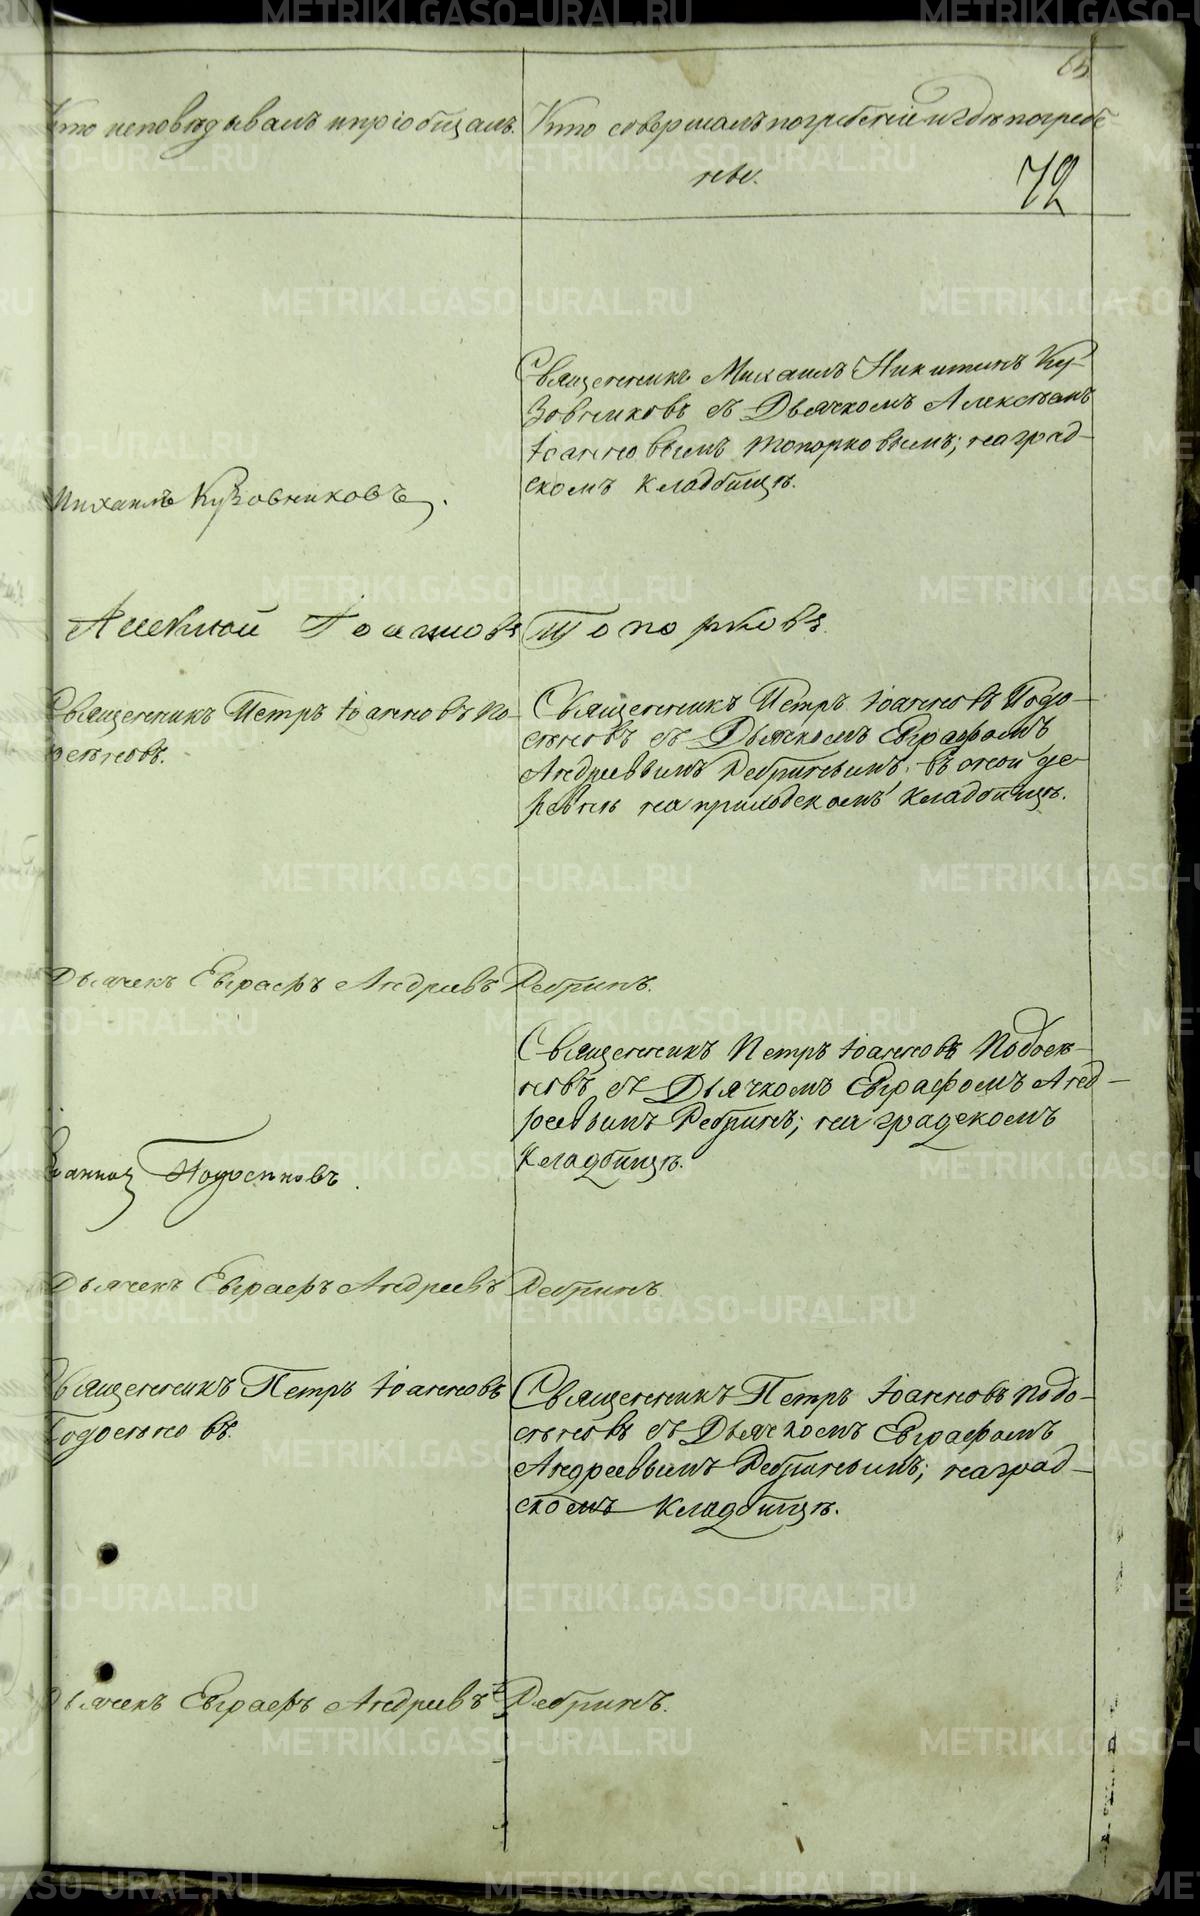 65
Кто исповѣдывалъ и пріобщалъ.
Кто совершалъ погребеніе и гдѣ погребе-
ны.
72
Священникъ Михаилъ Никитинъ Ку-
зовниковъ съ Дьячкомъ Алексѣемъ
Іоанновымъ Топорковымъ; на град-
скомъ кладбищѣ.
Михаилъ Кузовниковъ.
Алексѣй Іоанновъ Топорковъ
Священникъ Петръ Іоанновъ По-
Священникъ Петръ Іоанновъ Подо-
сѣновъ съ Дьячкомъ Евграфомъ
Андреевымъ Ребринымъ; въ оной де-
ревнѣ на приходскомъ кладбищѣ.
Дьячекъ Евграфъ Андреевъ Ребринъ.
Священникъ Петръ Іоанновъ Подосѣ-
новъ съ Дьячкомъ Евграфомъ Анд-
реевымъ Ребринъ; на градскомъ
кладбищѣ.
Подосеновъ.
Дьячекъ Евграфъ Андреевъ Ребринъ.
Священникъ Петръ Іоанновъ
Подосѣновъ.
Священникъ Петръ Іоанновъ Подо-
сѣновъ съ Дьячкомъ Евграфомъ
Андреевымъ Ребринымъ; на град-
скомъ кладбищѣ.
Дьячекъ Евграфъ Андреевъ Ребринъ.
METRIKI.GASO-URAL.RU